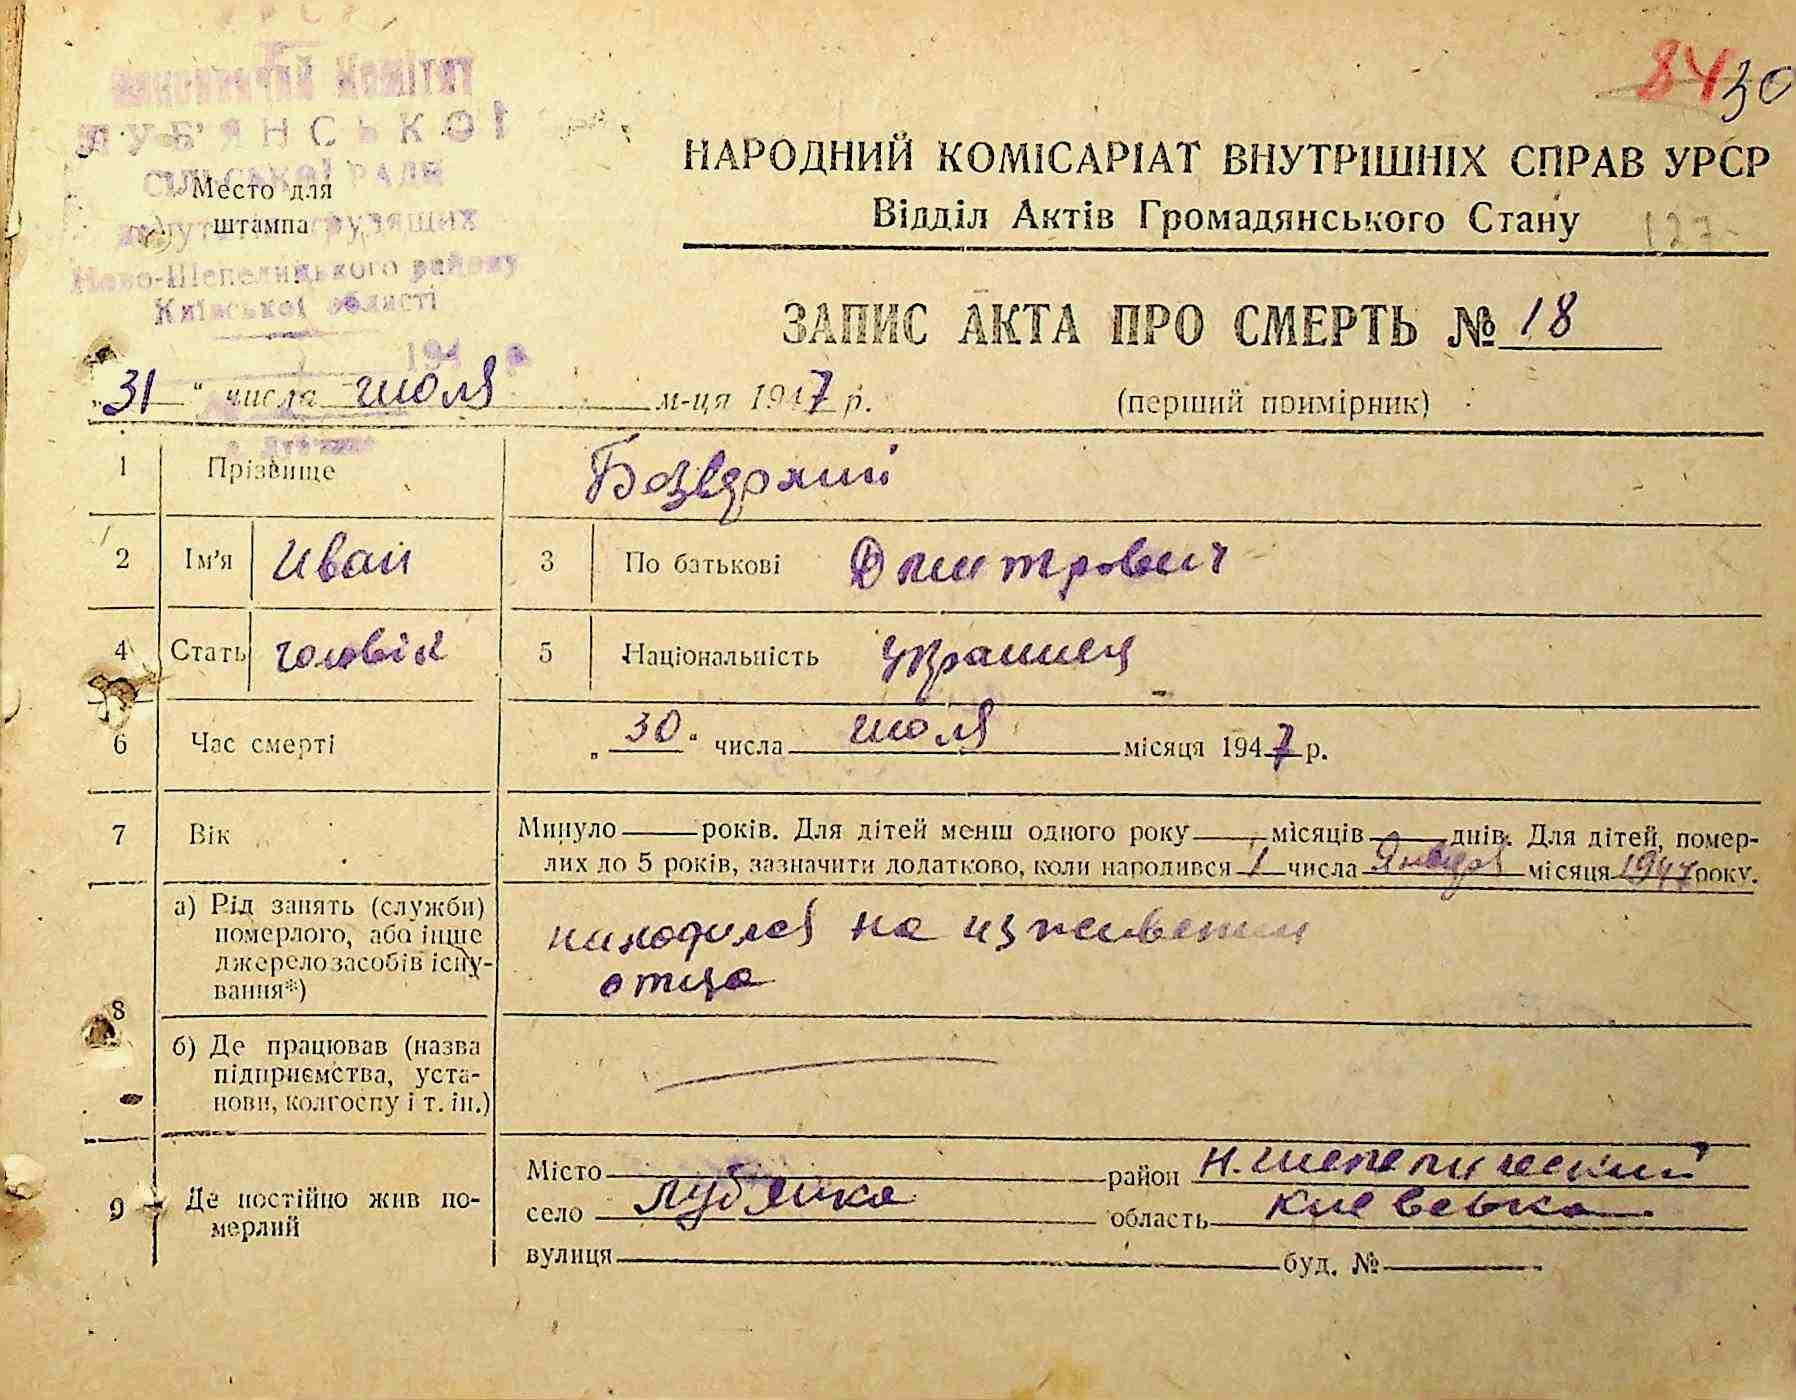 виконавчий комітет
ЛУБ'ЯНСЬКОЇ
СІЛЬСЬКОЇ РАДИ
Место для
штампа
Ново-Шепелицького району
Київської області
194 р.
84 30
НАРОДНИЙ КОМІСАРІАТ ВНУТРІШНІХ СПРАВ УРСР
Відділ Актів Громадянського Стану
127
ЗАПИС АКТА ПРО СМЕРТЬ № 18
„31“ числа июля м-ця 1947 р. (перший примірник)
1 Прізвище Безверхий
2 Ім'я Иван 3 По батькові Дмитрович
4 Стать чоловік 5 Національність Украинец
6 Час смерті „30“ числа июля місяця 1947 р.
7 Вік Минуло років. Для дітей менш одного року місяців днів. Для дітей, помер-
лих до 5 років, зазначити додатково, коли народився 1 числа Января місяця 1947 року.
8 а) Рід занять (служби)
померлого, або інше
джерело засобів існу-
вання*)
находился на иждивении
отца
б) Де працював (назва
підприємства, уста-
нови, колгоспу і т. ін.)
9 Де постійно жив по-
мерлий
Місто район Н. Шепелический
село Лубянка область Киевська
вулиця буд. №